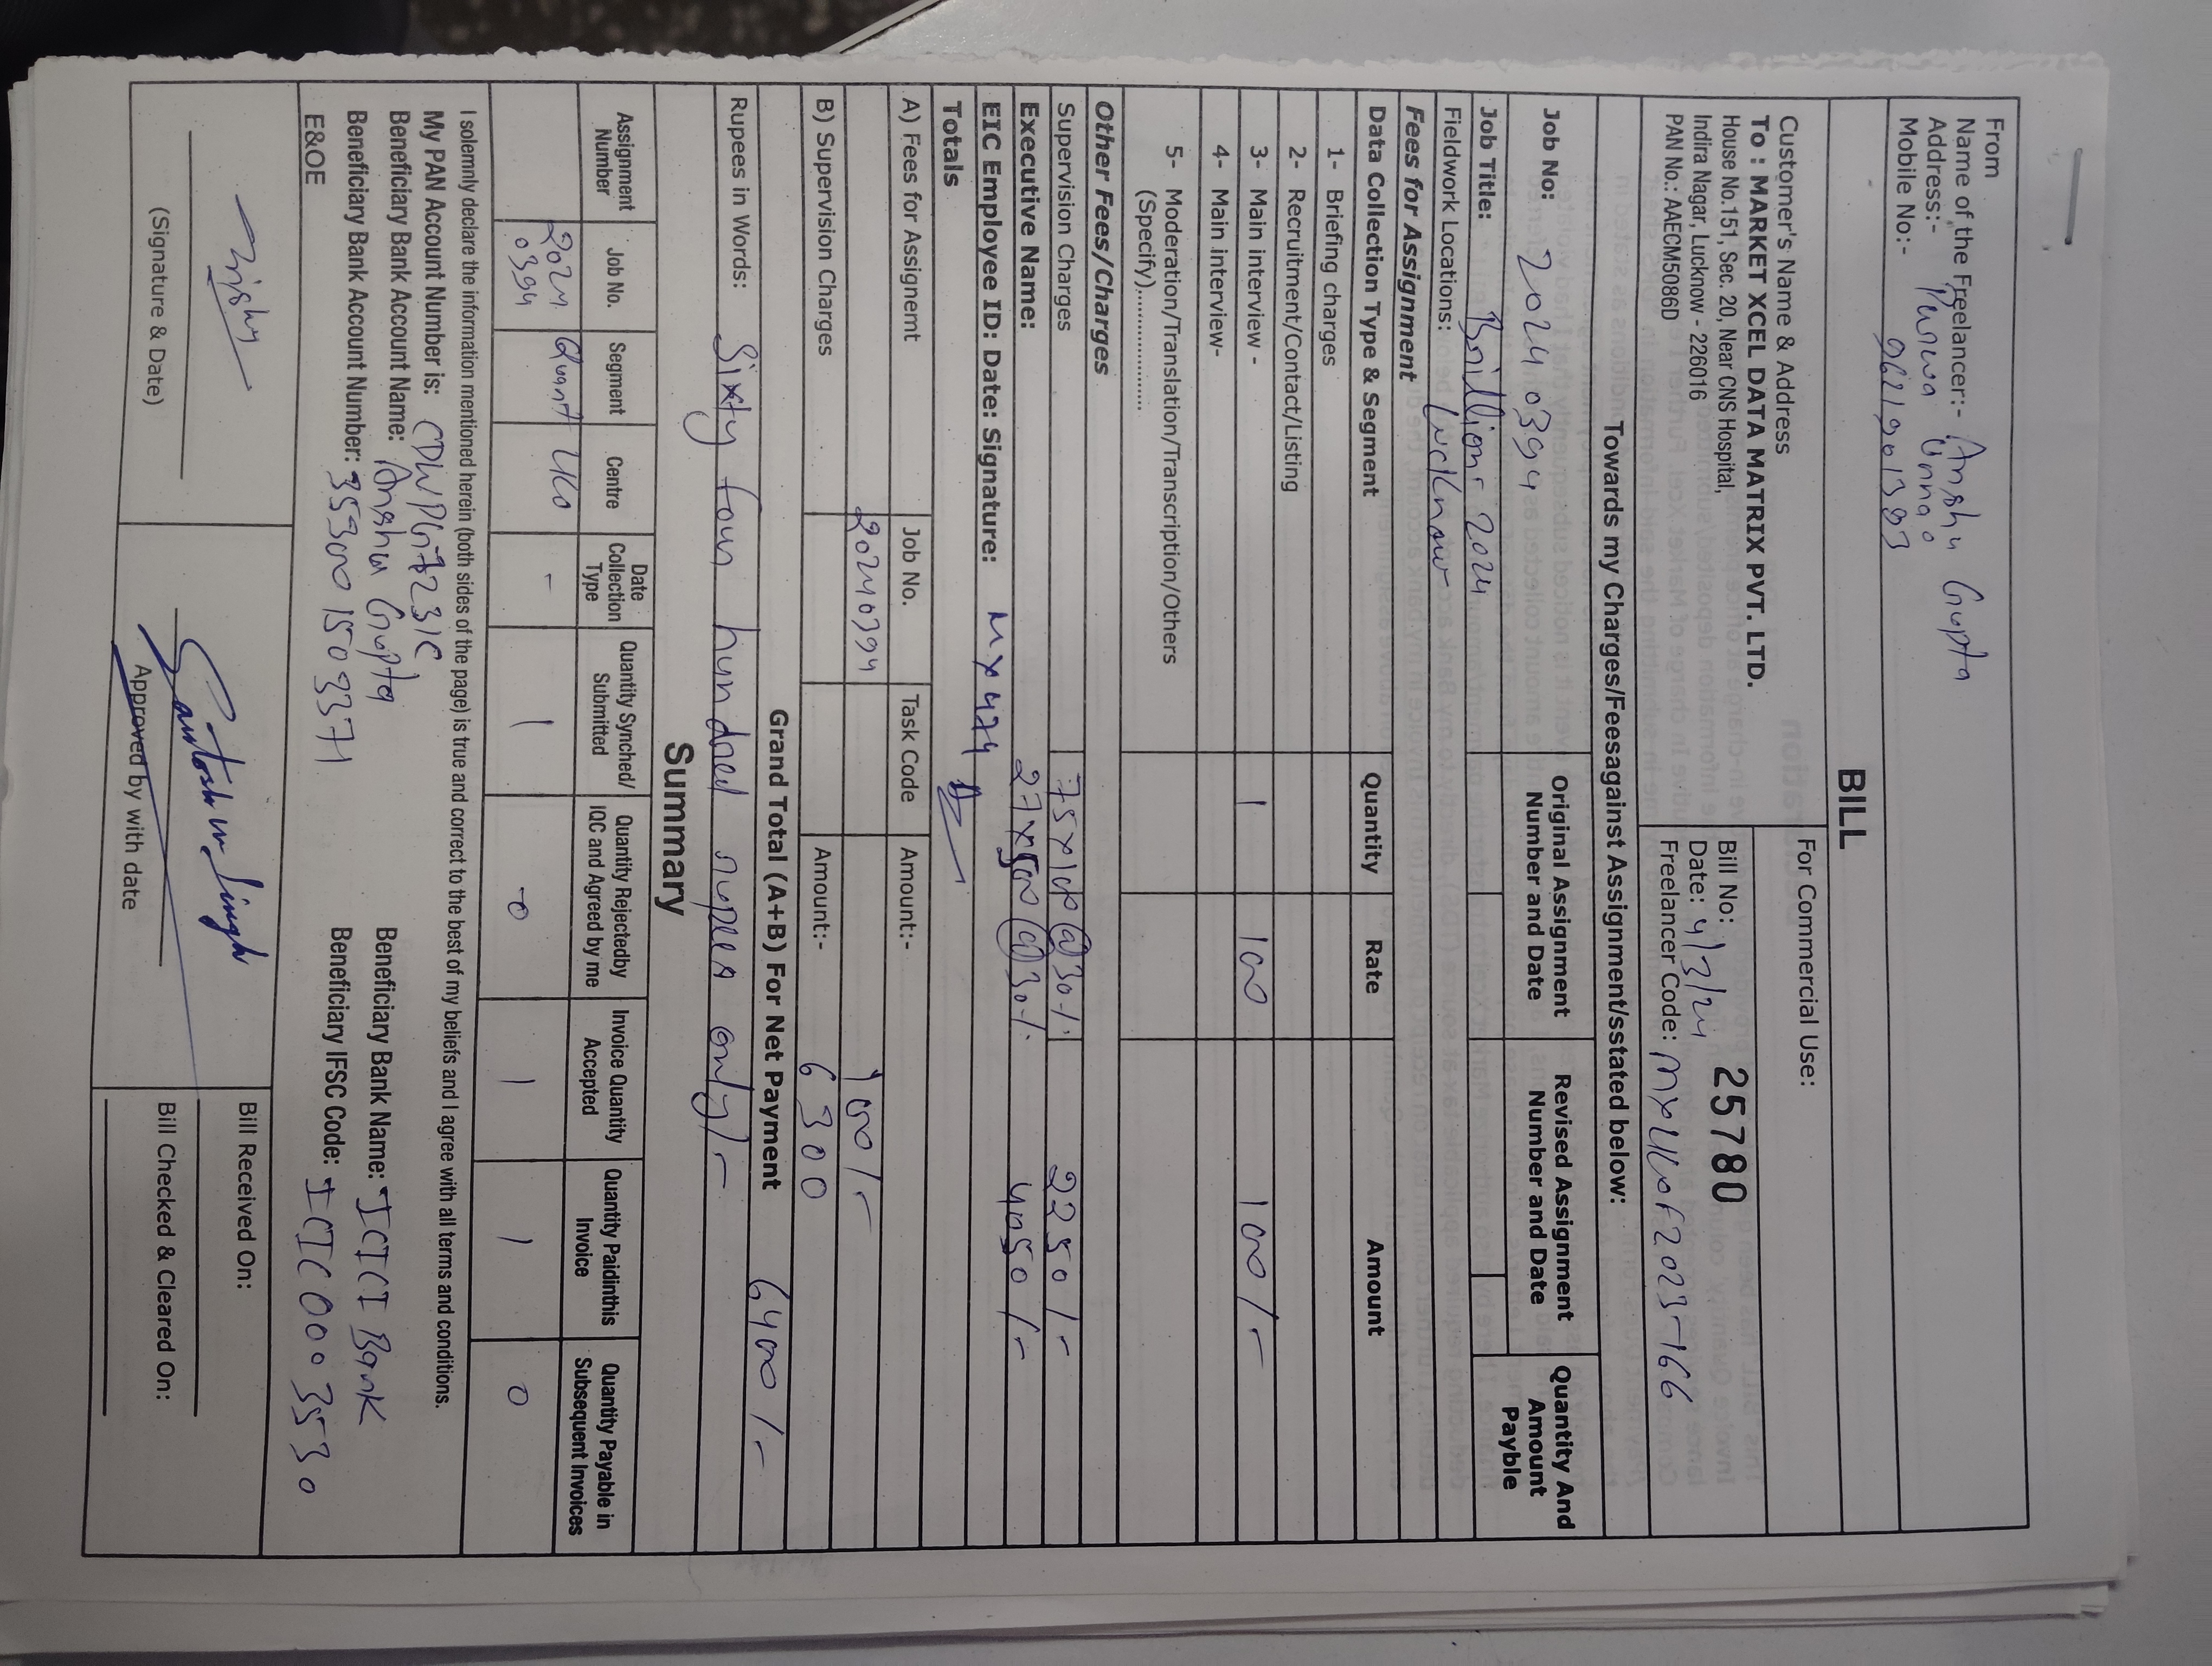 From
Name of the Freelancer:- Anshu Gupta
Address:- Purwa Unnao
Mobile No:- 9621901393
BILL
Customer's Name & Address
To : MARKET XCEL DATA MATRIX PVT. LTD.
House No.151, Sec. 20, Near CNS Hospital,
Indira Nagar, Lucknow - 226016
PAN No.: AAECM5086D
For Commercial Use:
Bill No: 25780
Date: 4/3/24
Freelancer Code: MXUKOF2023-166
Towards my Charges/Feesagainst Assignment/sstated below:
Job No: 20240394
Original Assignment Number and Date
Revised Assignment Number and Date
Quantity And Amount Payble
Job Title: Brillion-2024
Fieldwork Locations: Lucknow
Fees for Assignment
Data Collection Type & Segment Quantity Rate Amount
1- Briefing charges
2- Recruitment/Contact/Listing
3- Main interview - 1 100 100/-
4- Main interview-
5- Moderation/Translation/Transcription/Others
(Specify)....................
Other Fees/Charges
Supervision Charges 75x100@30% 2250/-
Executive Name: 27x500@30% 4050/-
EIC Employee ID: Date: Signature: MX474
Totals
A) Fees for Assignemt Job No. Task Code Amount:-
20240394 100/-
B) Supervision Charges Amount:- 6300
Grand Total (A+B) For Net Payment 6400/-
Rupees in Words: Sixty four hundred rupees only/-
Summary
Assignment Number
Job No.
Segment
Centre
Date Collection Type
Quantity Synched/ Submitted
Quantity Rejectedby IQC and Agreed by me
Invoice Quantity Accepted
Quantity Paidinthis Invoice
Quantity Payable in Subsequent Invoices
20240394 Quant - 1 0 1 1 0
I solemnly declare the information mentioned herein (both sides of the page) is true and correct to the best of my beliefs and I agree with all terms and conditions.
My PAN Account Number is:
Beneficiary Bank Account Name: Anshu Gupta
Beneficiary Bank Name: ICICI Bank
Beneficiary Bank Account Number: 353001503371
Beneficiary IFSC Code: ICIC0003530
E&OE
(Signature & Date)
Santosh Singh
Approved by with date
Bill Received On:
Bill Checked & Cleared On: